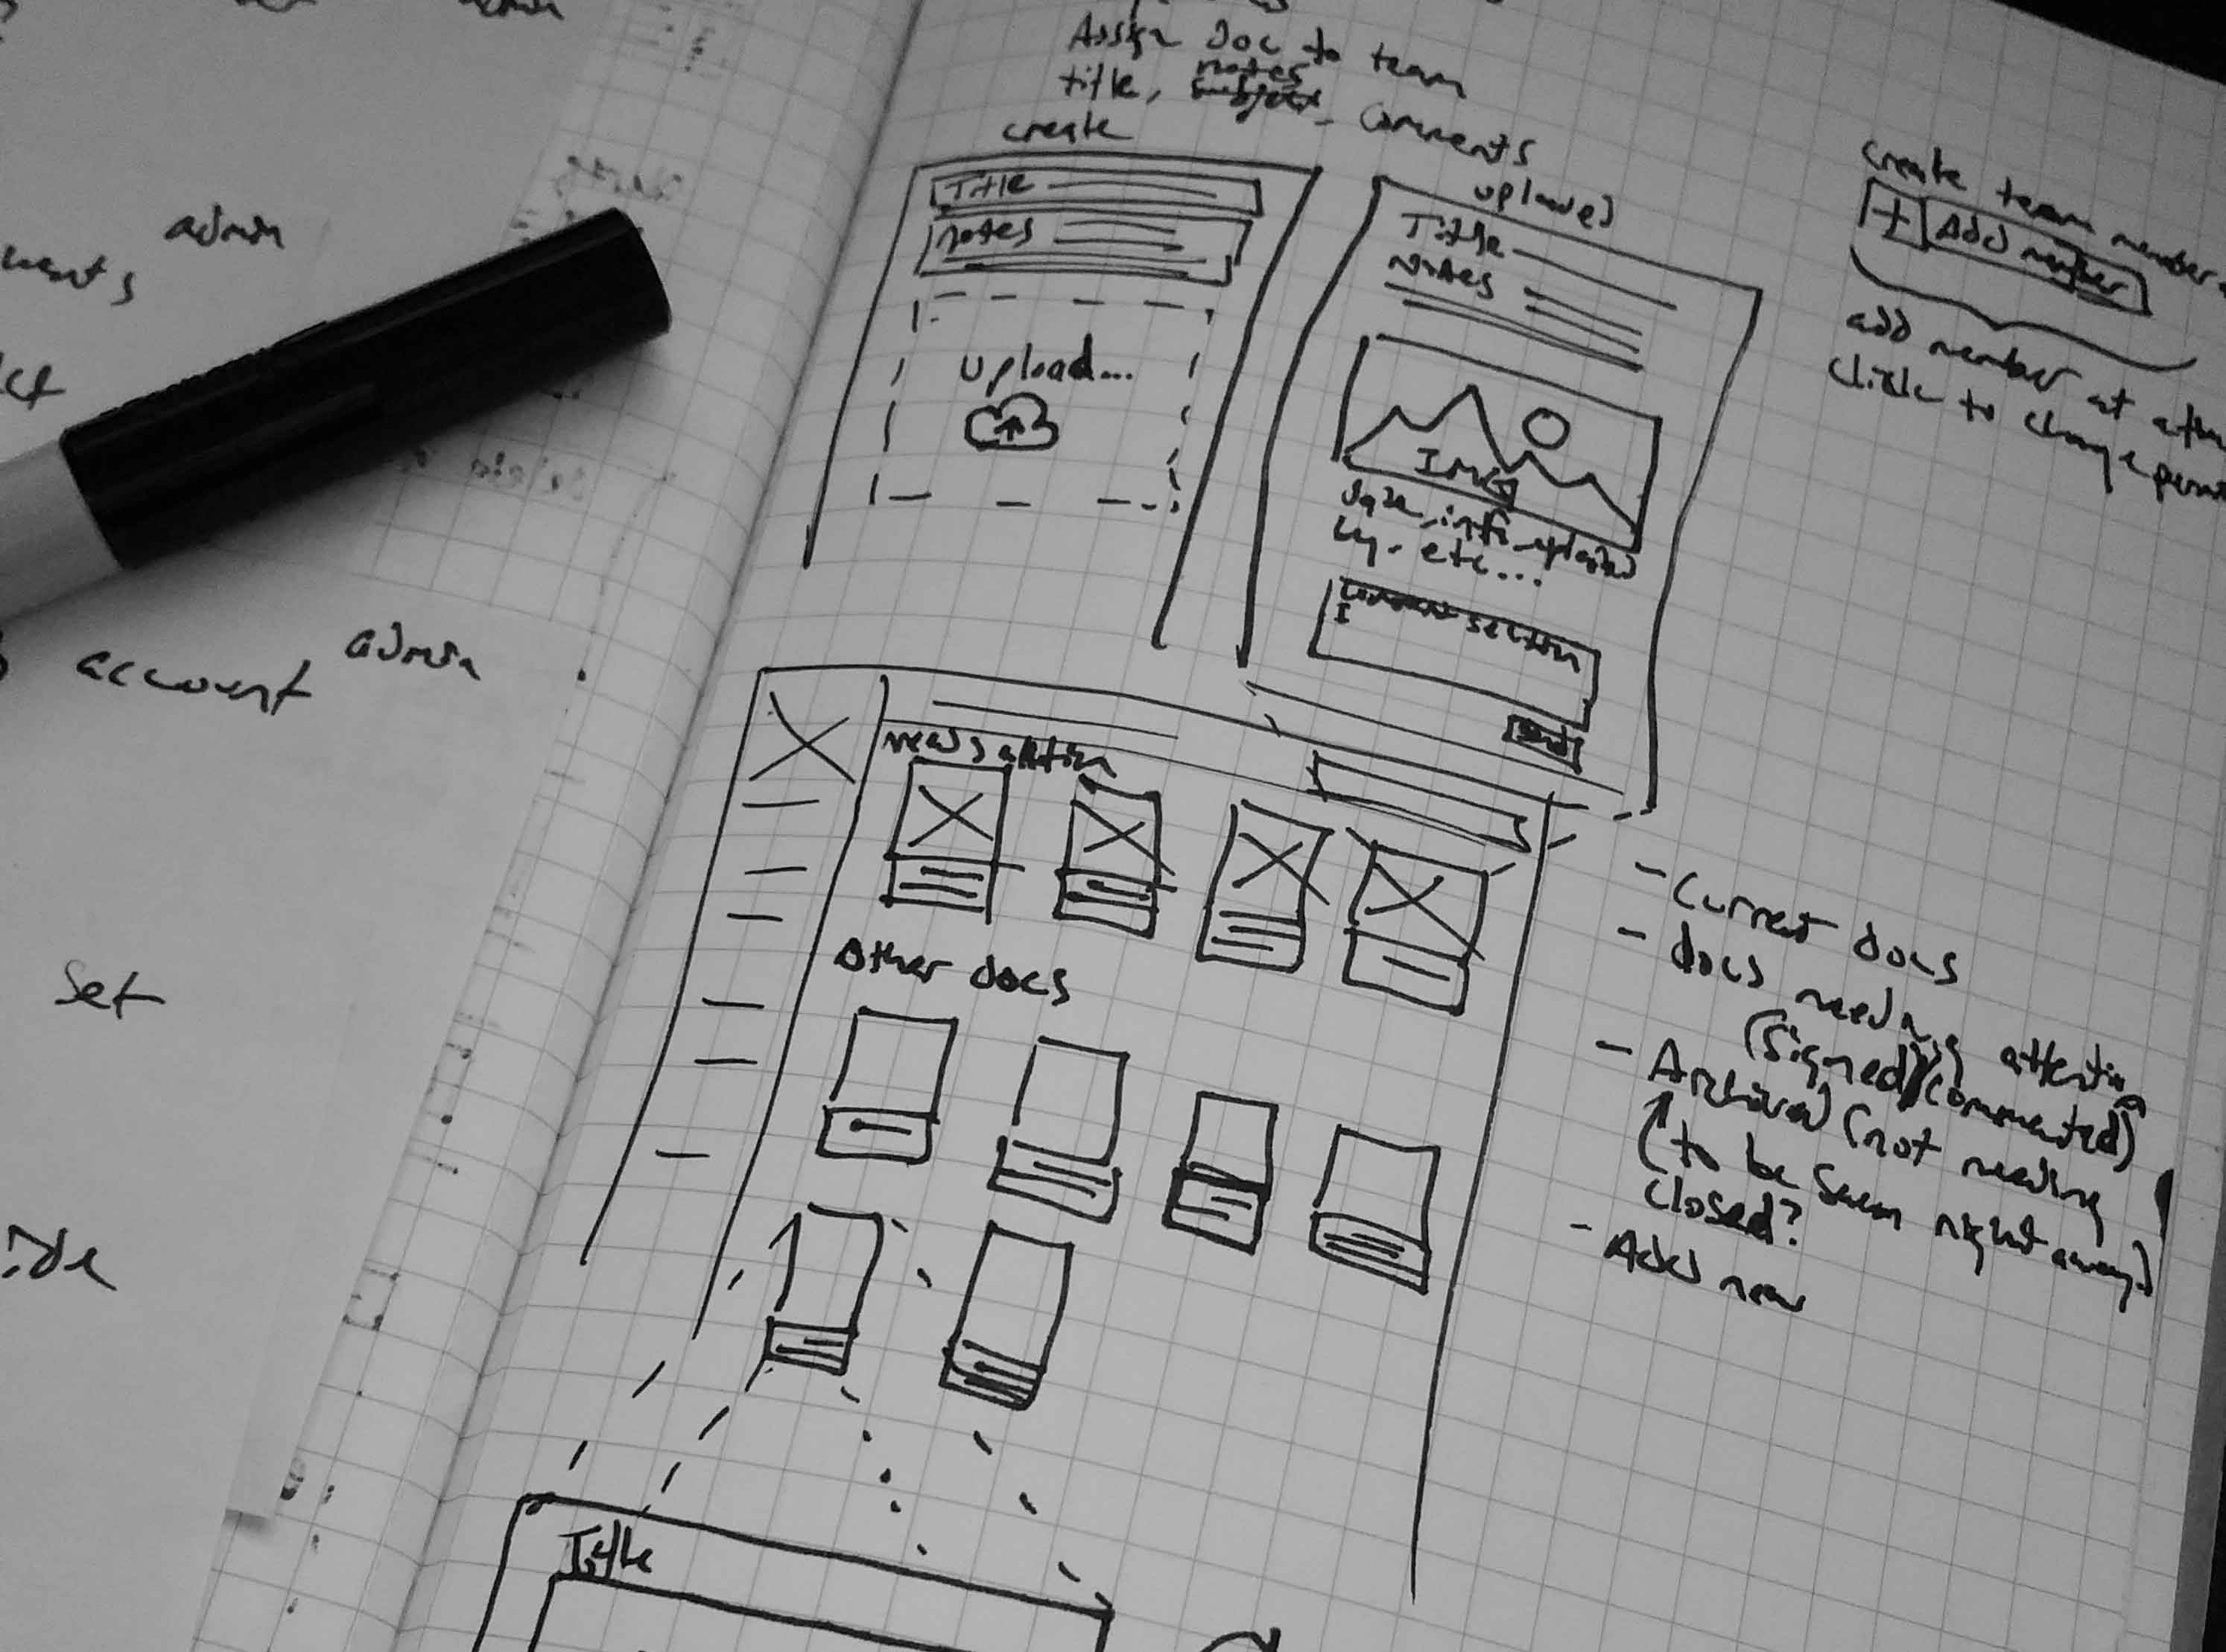 admin
admin
account admin
Set
Assign Doc to team
notes
title, subject, comments
create
Title
notes
upload...
uploaded
Title
Notes
Img
info uploaded
by. etc...
comment section
Send
create team member
+ Add member
add member at
click to change
needs attention
Other docs
- Current docs
- docs needing attention
(signed/commented)
- Archived (not needing
to be seen right away)
closed?
- Add new
Title